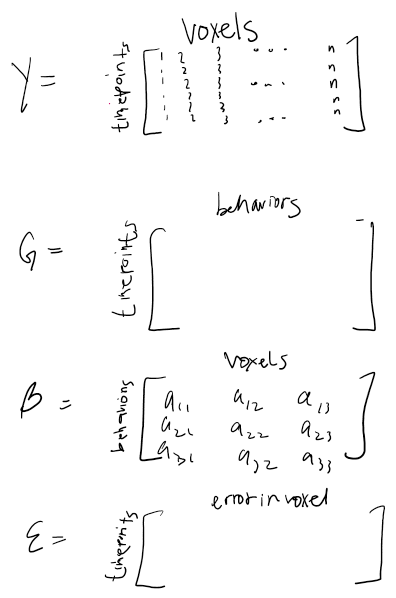 voxels
Y = timepoints [ 1 2 3 ... n
2 n
1 2 3 ... n
1 2 3 n
1 2 3 n
1 2 3 ... ]
behaviors
G = timepoints [ ]
voxels
β = behaviors [ a11 a12 a13
a21 a22 a23
a31 a32 a33 ]
error in voxel
ε = timepoints [ ]